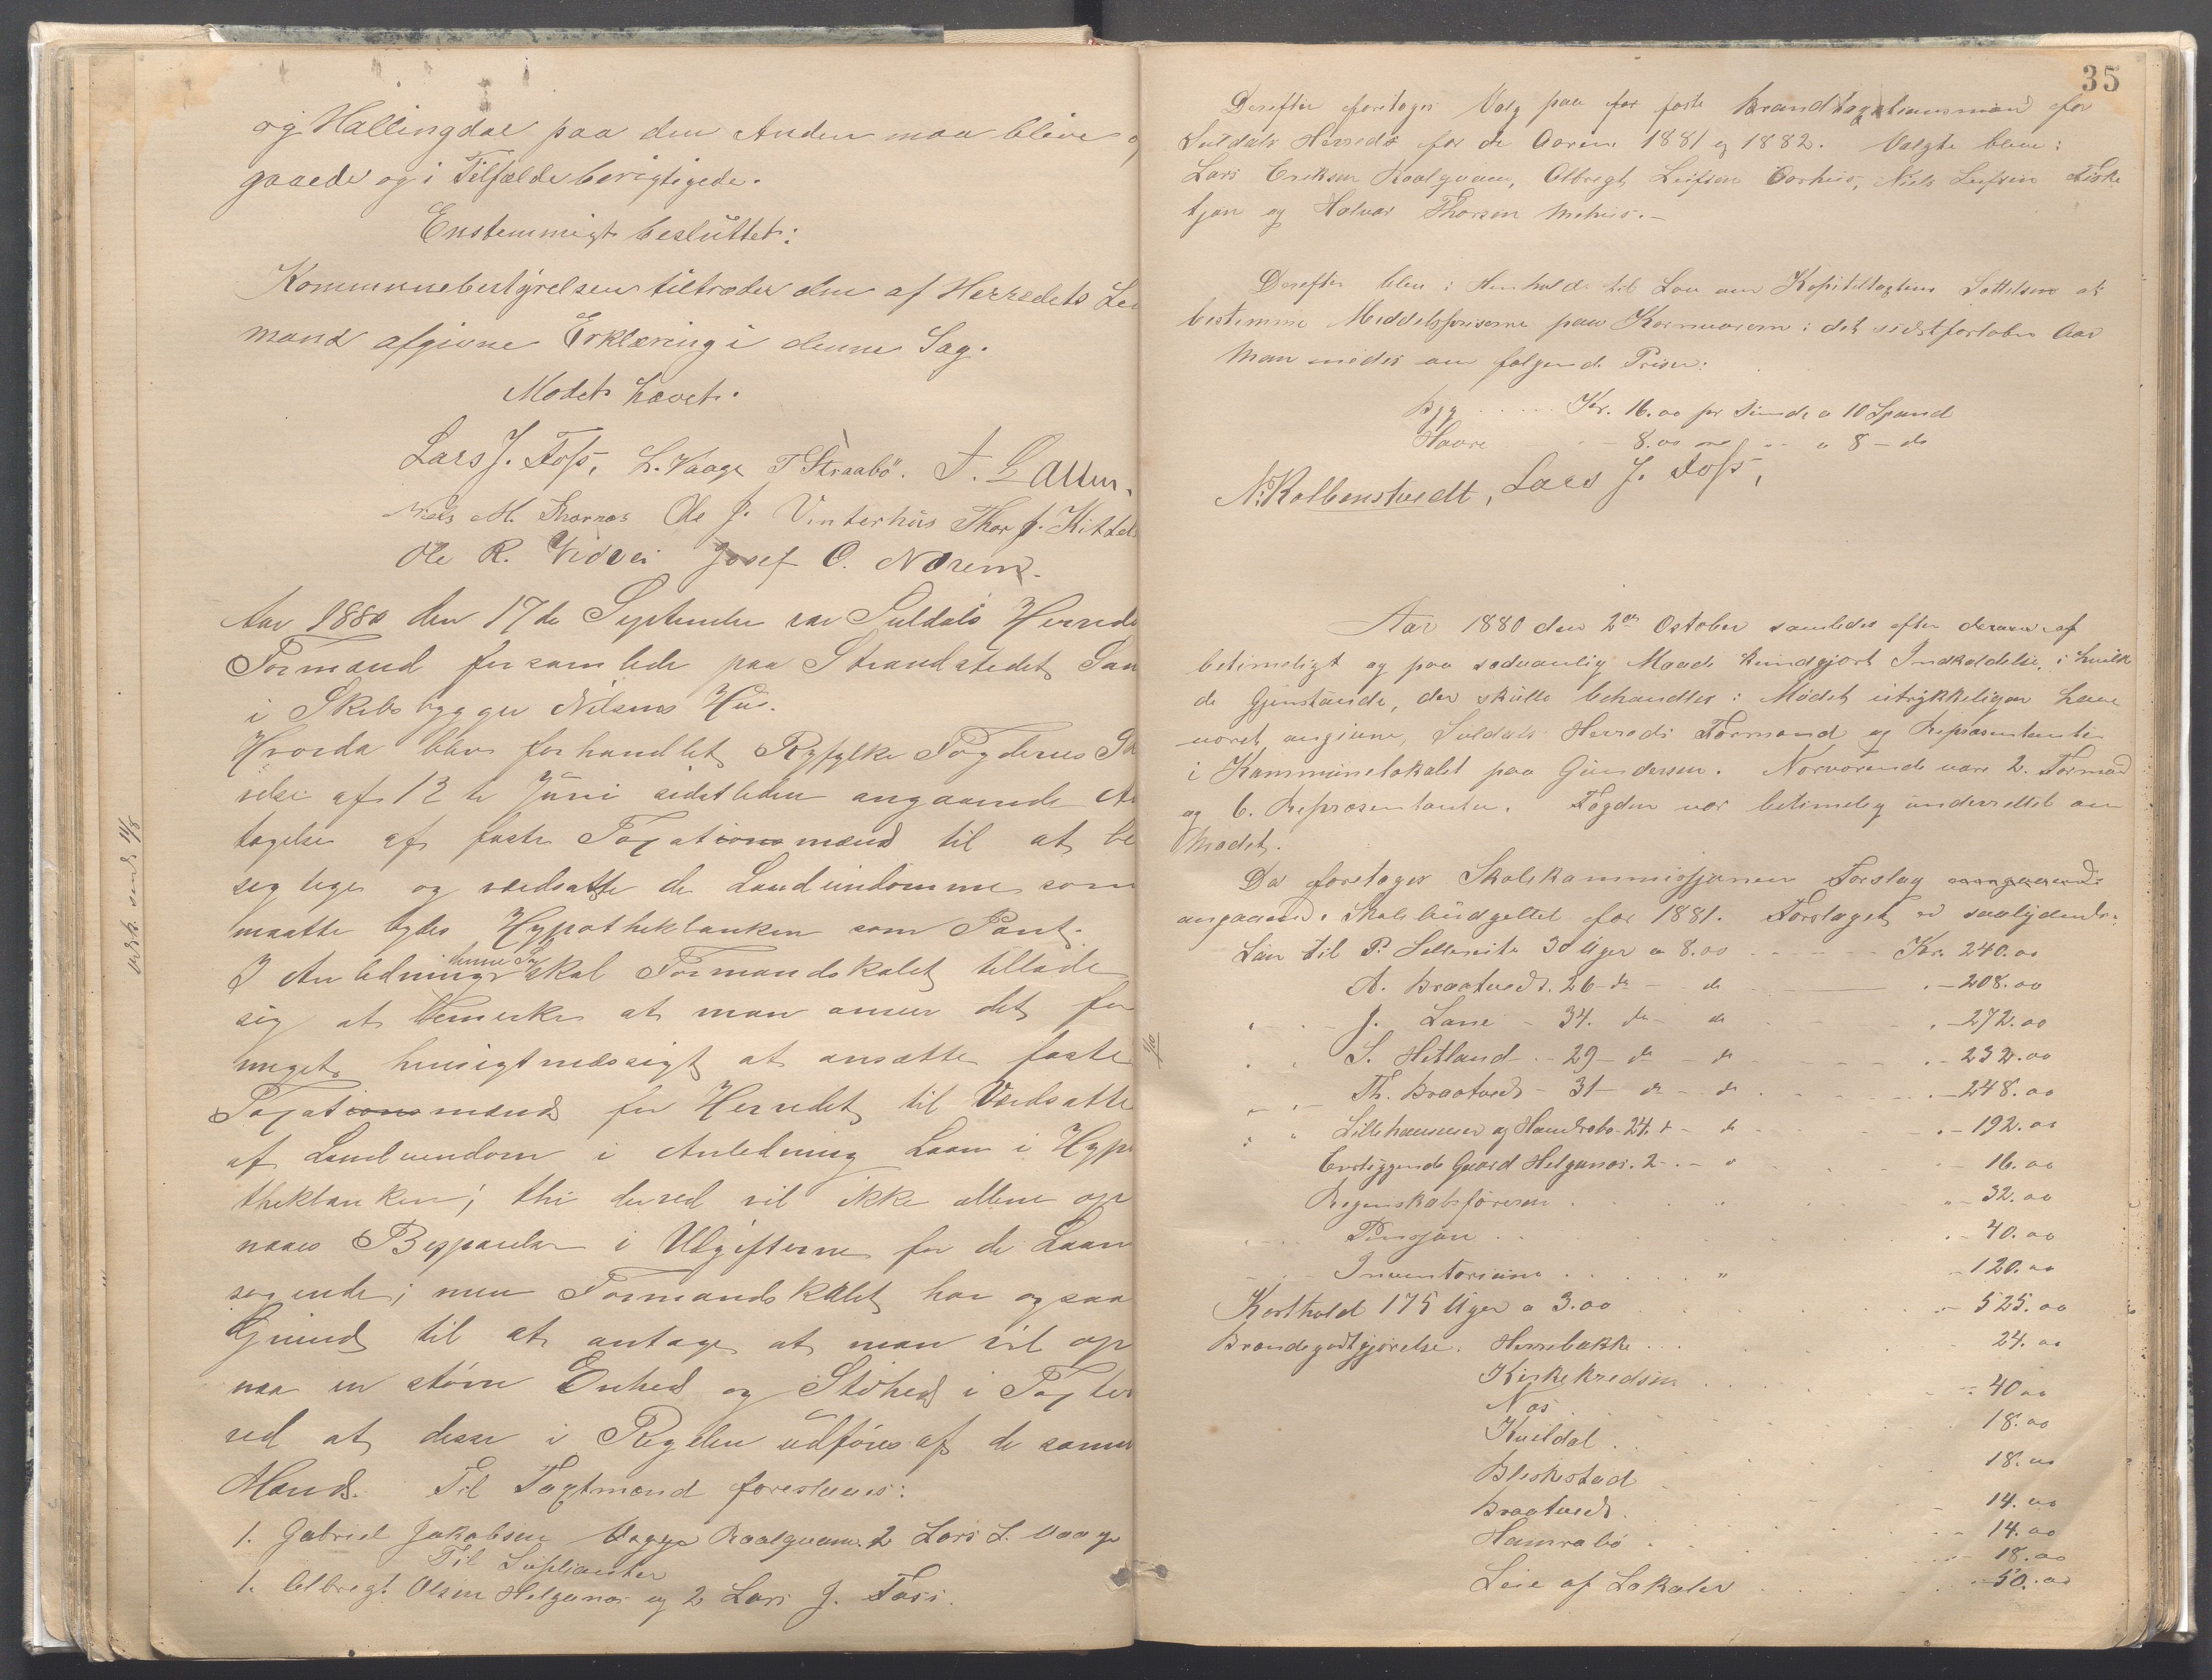 og Hallingdal paa den Anden maa blive op
gaaede og i Tilfælde berigtigede.
Enstemmigt besluttet:
Kommunebestyrelsen tiltræder den af Herredets Len
mand afgivne Erklæring i denne Sag.
Mødet hævet.
Lars J. Foss, L. Vaage T Straabö. T. Latten.
Niels M. Thornæs Ole J. Vinterhus Thor J. Kittels
Ole R. Vidvei Josef O. Nærem.
Aar 1880 den 17de September var Suldals Herreds
Formænd forsamlede paa Strandstedet San
i Skibsbygger Nilsens Hus.
Hvorda blev forhandlet Ryfylke Fogderies Sk
velse af 12te Juni sidstleden angaaende An
tagelse af faste Taxationsmænd til at be
sigtige og værdsætte de Landeiendomme som
maatte bydes Hypothekbanken som Pant.
I Anledning denne Sag skal Formandskabet tillade
sig at bemerke at man anser det for
meget hensigtmæssigt at ansætte faste
Taxationsmænd for Herredet til Værdsætte
af Landeiendom i Anledning Laan i Hypo
thekbanken; thi derved vil ikke allene op
naaes Besparelse i Udgifterne for de Laan
søgende; men Formandskabet har ogsaa
Grund til at antage at man vil op
naa en større Enhed og Støhed i Taxter
ved at disse i Regelen udføres af de samme
Mænd. Til Taxtmænd foreslaaes:
1. Gabriel Jakobsen Vegge Roalqvam. 2 Lars L. Vaage
Til Suplianter
1. Albregt Olsen Helganæs og 2 Lars J. Foss.
35
Derefter foretoges Valg paa for faste Brandtaxtationsmænd for
Suldals Herred for de Aarene 1881 og 1882. Valgte bleve:
Lars Eriksen Roalqvam, Albregt Leifsen Aarhus, Niels Leifsen Fiske
tjøn og Halvor Thorsen Mehus.-
Derefter blev i Henhold til Lov om Kapiteltaxtens Sættelse at
bestemme Middelspriserne paa Kornvarerne i det sidstforløbne Aar
Man enedes om følgende Priser:
Byg . . . . . Kr. 16.00 pr Tønde a 10 Spand
Havre - 8.00 - - a 8 - do
N. Kolbenstvedt, Lars J. Foss,
Aar 1880 den 2den October samledes efter derom af
betimeligt og paa sædvanlig Maade kundgjort Indkaldelse, i hvilk
de Gjenstande, der skulle behandles i Mødet udtrykkeligen have
været angivne, Suldals Herreds Formænd og Repræsentanter
i Kommunelokalet paa Gundersen. Nærværende vare 2. Formænd
og 6. Repræsentanter. Fogden var betimelig underrettet om
Mødet.
Da foretoges Skolekommissjonen Forslag angaaende
angaaende Skolebudgettet for 1881. Forslaget er saalydende:
Løn til P. Sellemite 30 Uger a 8.00 - - - - - Kr. 240.00
A. Braatvedt. 26 do - do - 208.00
J. Lane - 34. do - do - 272.00
S. Hetland - 29 - do - do - 232.00
Th. Braatvedt - 31 - do - do - 248.00
Lillehammer og Hamrabø - 24. do - do - 192.00
Ensliggende Gaard Helganæs. 2 - - 16.00
Regnskabsføreren - 32.00
Pensjon - 40.00
Inventarium " - 120.00
Kosthold 175 Uger a 3.00 - 525.00
Brændegodtgjørelse. Herrebakke 24.00
Kirkekredsen - 40 00
Næs 18.00
Kvildal 18.00
Bleskestad 14.00
Braatvedt 14.00
Hamrabø 18.00
Leie af Lokaler 50.00